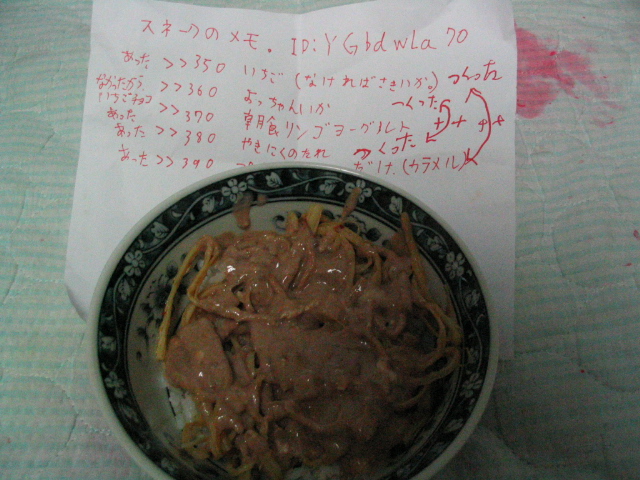 スネークのメモ。ID:YGbdwLa70
あった >>350 いちご(なければさきいか。) つくった
なかったから いちごチョコ >>360 よっちゃんいか つくった
あった >>370 朝食リンゴヨーグルト
あった >>380 やきにくのたれ つくった
あった >>390 だけ.(カラメル)